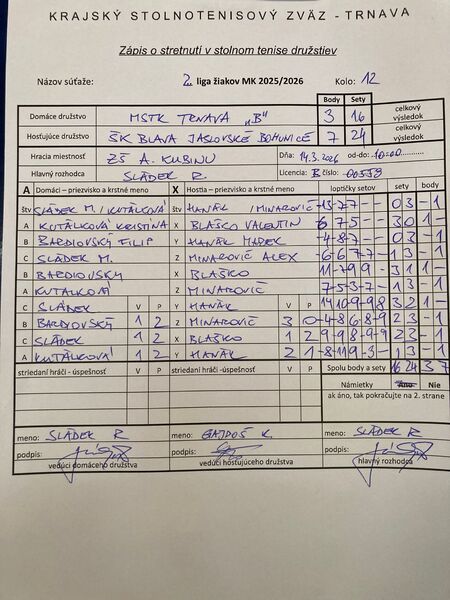 KRAJSKÝ STOLNOTENISOVÝ ZVÄZ - TRNAVA
Zápis o stretnutí v stolnom tenise družstiev
Názov súťaže: 2. liga žiakov MK 2025/2026 Kolo: 12
Body Sety
Domáce družstvo MSTK TRNAVA „B" 3 16 celkový výsledok
Hosťujúce družstvo ŠK BLAVA JASLOVSKÉ BOHUNICE 7 24 celkový výsledok
Hracia miestnosť ZŠ A. KUBINU Dňa: 14.3.2026 od-do: 10:00
Hlavný rozhodca SLÁDEK R. Licencia B číslo: 00559
A Domáci – priezvisko a krstné meno X Hostia – priezvisko a krstné meno loptičky setov sety body
štv SLÁDEK M. / KUTÁLKOVÁ štv HANÁK / MINAROVIČ 0 3 - 1
A KUTÁLKOVÁ KRISTÍNA X BLAŠKO VALENTIN 6 7 5 - - 3 0 1 -
B BARDIOVSKÝ FILIP Y HANÁK MAREK -4 -8 -7 - - 0 3 - 1
C SLÁDEK M. Z MINAROVIČ ALEX -6 6 -7 -7 - 1 3 - 1
B BARDIOVSKÝ X BLAŠKO 11 -7 9 9 - 3 1 1 -
A KUTÁLKOVÁ Z MINAROVIČ 1 3 - 1
C SLÁDEK V P Y HANÁK V P 3 2 1 -
B BARDIOVSKÝ 1 2 Z MINAROVIČ 3 0 2 3 - 1
C SLÁDEK 1 2 X BLAŠKO 1 2 2 3 - 1
A KUTÁLKOVÁ 1 2 Y HANÁK 2 1 -8 -11 9 -3 - 1 3 - 1
striedaní hráči - úspešnosť striedaní hráči - úspešnosť Spolu body a sety 16 24 3 7
Námietky Áno Nie
ak áno, tak pokračujte na 2. strane
meno: SLÁDEK R meno: GAJDOŠ K. meno: SLÁDEK R
podpis: podpis: podpis:
vedúci domáceho družstva vedúci hosťujúceho družstva hlavný rozhodca